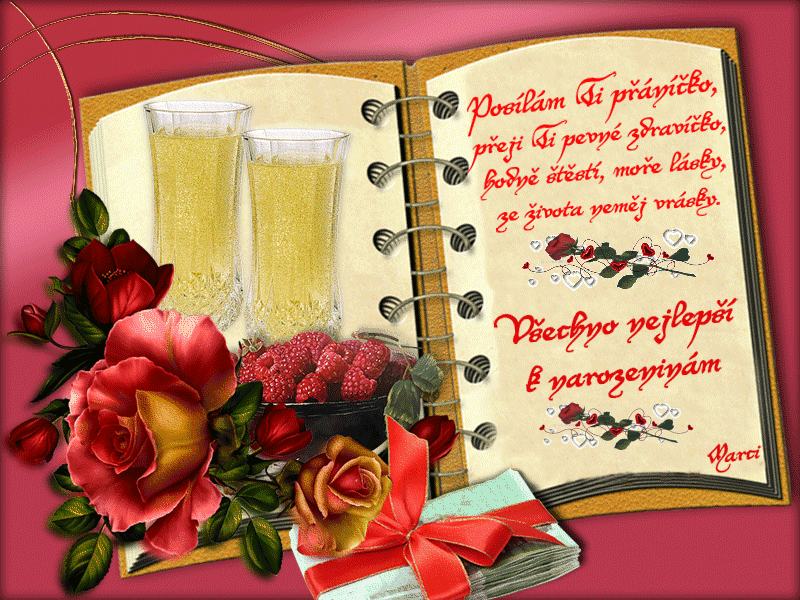 Posílám Ti přáníčko,
přeji Ti pevné zdravíčko,
hodně štěstí, moře lásky,
ze života neměj vrásky.
Všechno nejlepší
k narozeninám
Marci